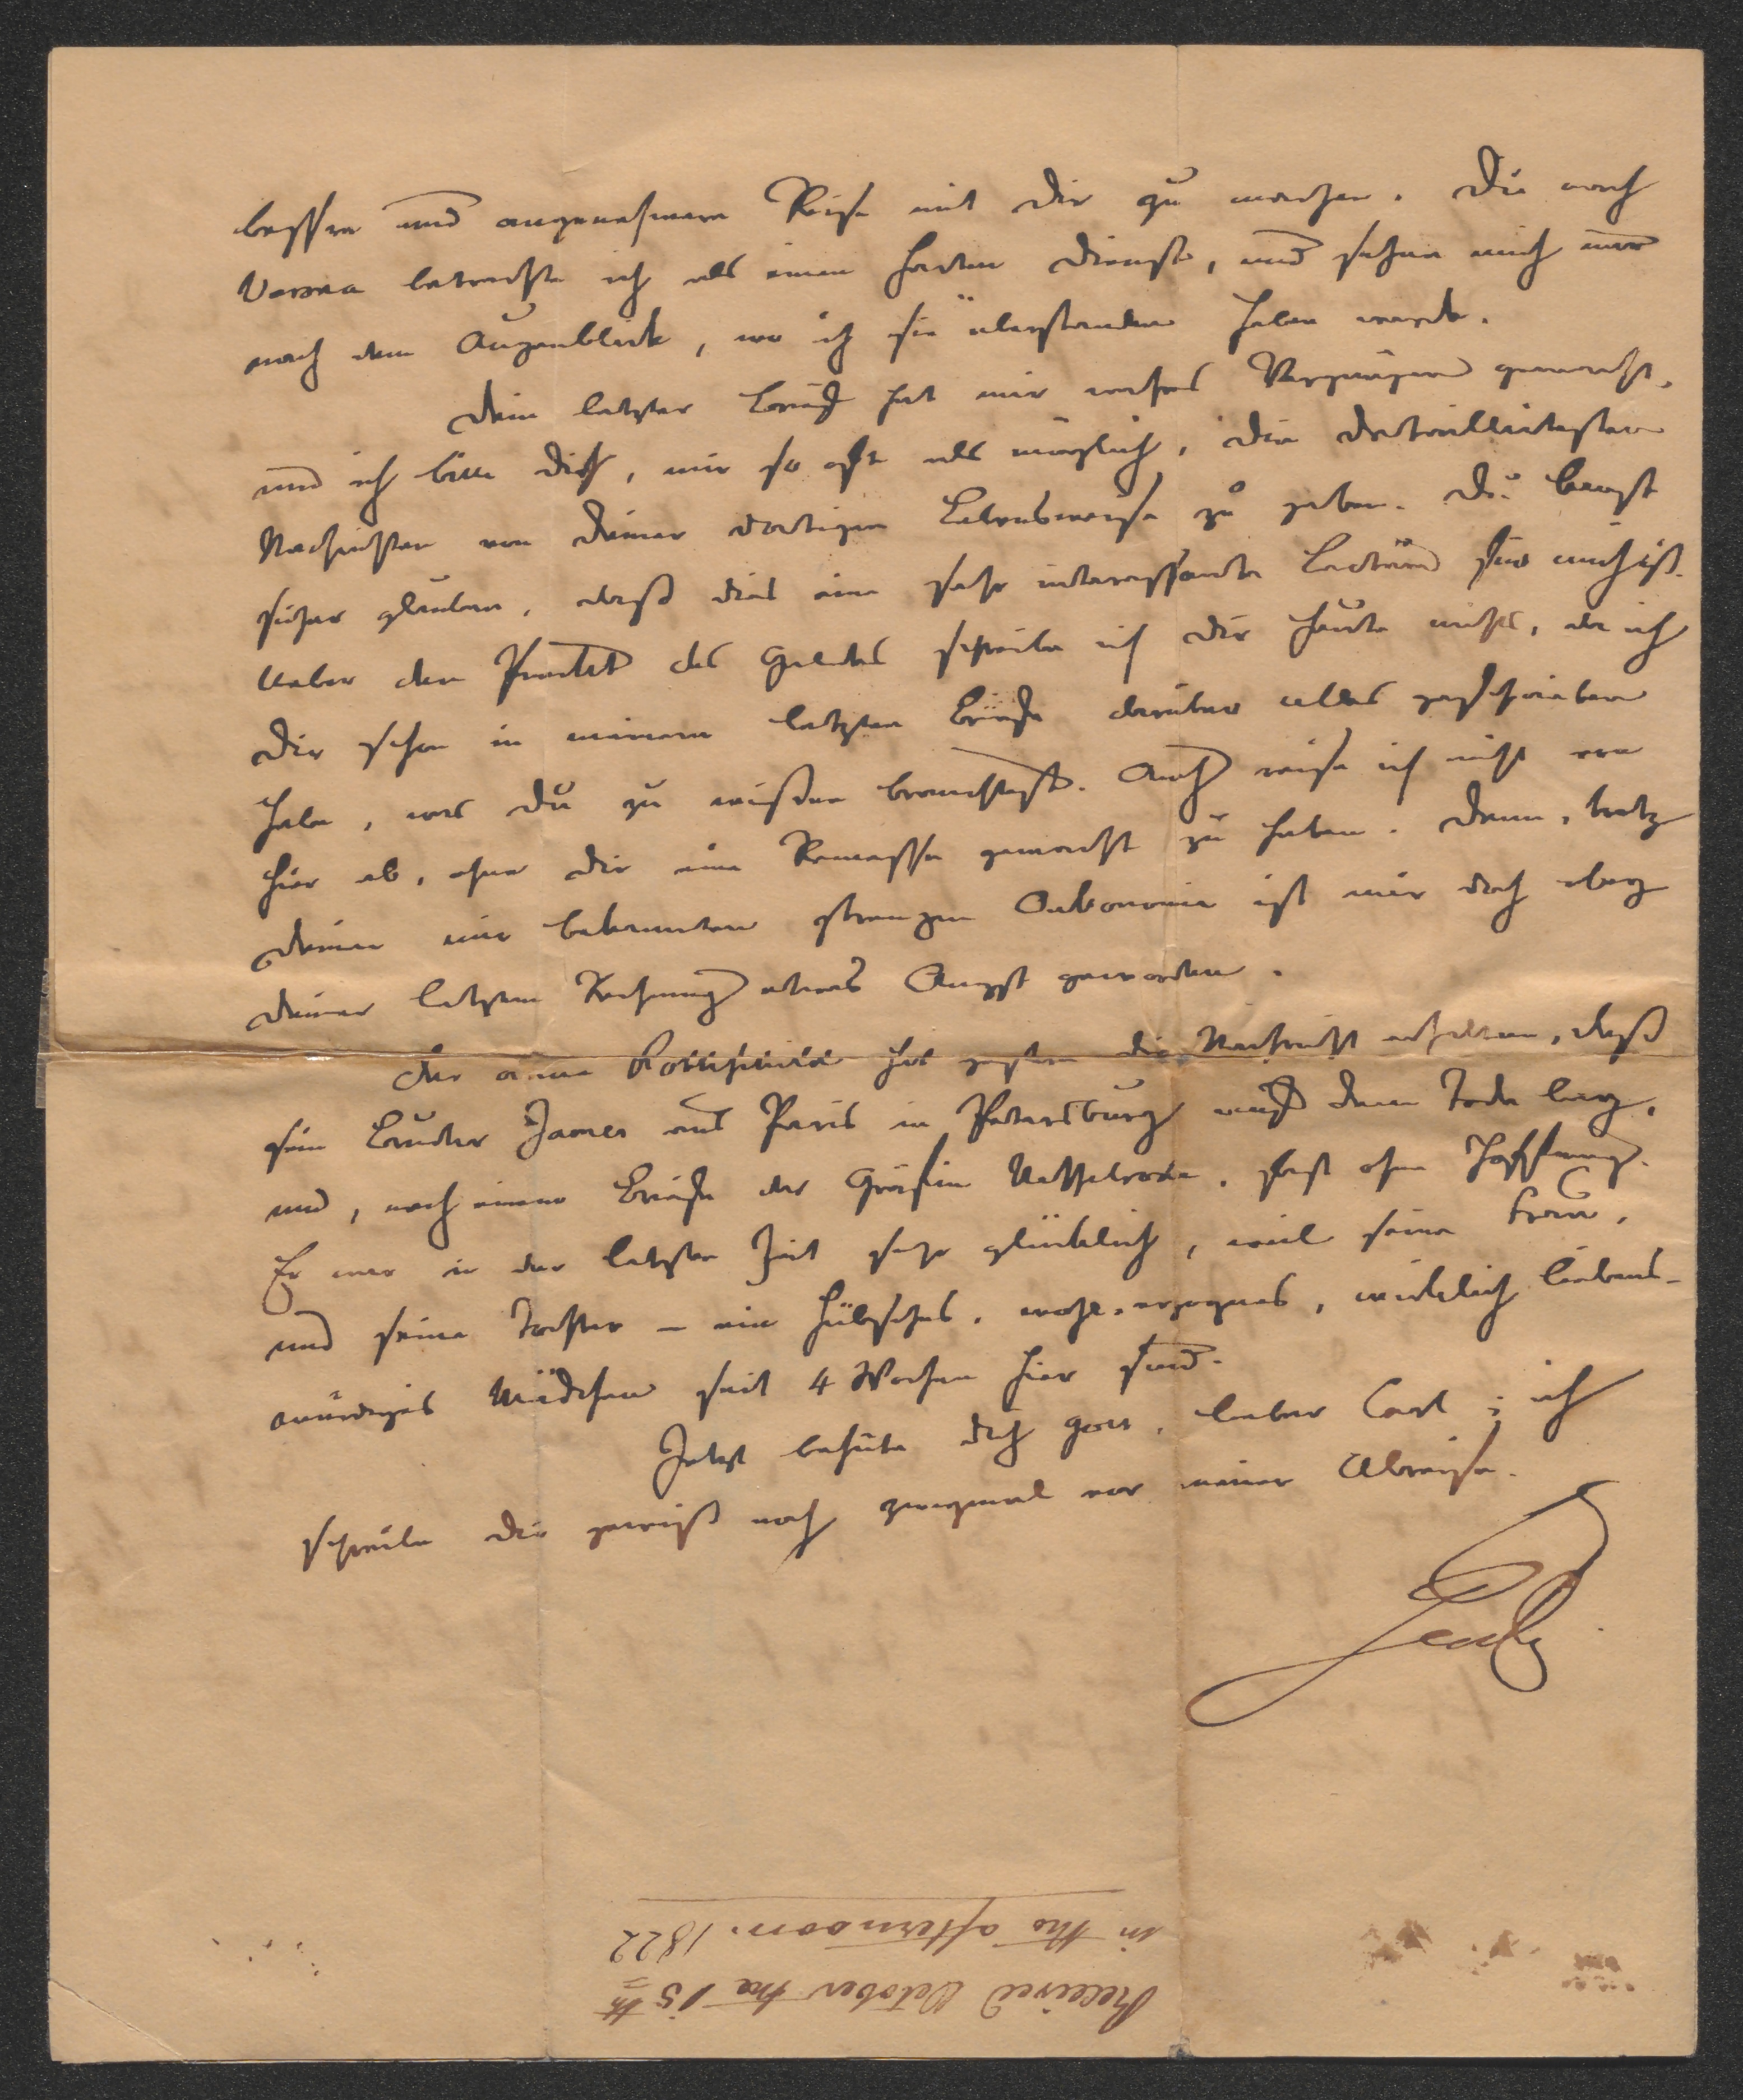 bessere und angenehmere Reise mit Dir zu machen. Die nach
Verona betrachte ich als einen harten Dienst, und sehne mich nur
nach dem Augenblick, wo ich sie überstanden haben werde.
Dein letzter Brief hat mir wahres Vergnügen gemacht,
und ich bitte Dich, mir so oft als möglich, die detaillirtesten
Nachrichten von Deiner dortigen Lebensweise zu geben. Du kannst
sicher glauben, daß dies eine sehr interessante Lectüre für mich ist.
Ueber den Punkt des Geldes schreibe ich Dir heute nichts, da ich
Dir schon in meinem letzten Briefe darüber alles geschrieben
habe, was Du zu wißen brauchtest. Auch reise ich nicht von
hier ab, ohne Dir eine Remesse gemacht zu haben. Denn, trotz
Deiner mir bekannten strengen Oekonomie ist mir doch bey
Deiner letzten Rechnung etwas Angst geworden.
Der arme Rothschild hat gestern die Nachricht erhalten, daß
sein Bruder James aus Paris in Petersburg auf dem Tode lag,
und, nach einem Briefe der Gräfin Nesselrode, fast ohne Hoffnung.
Er war in der letzten Zeit sehr glücklich, weil seine Frau,
und seine Tochter – ein hübsches, wohl-erzognes, wirklich liebens-
würdiges Mädchen seit 4 Wochen hier sind.
Jetzt behüte Dich Gott, lieber Carl; ich
schreibe Dir gewiß noch zweymal vor meiner Abreise.
Gentz
Received October the 15th
in the afternoon. 1822